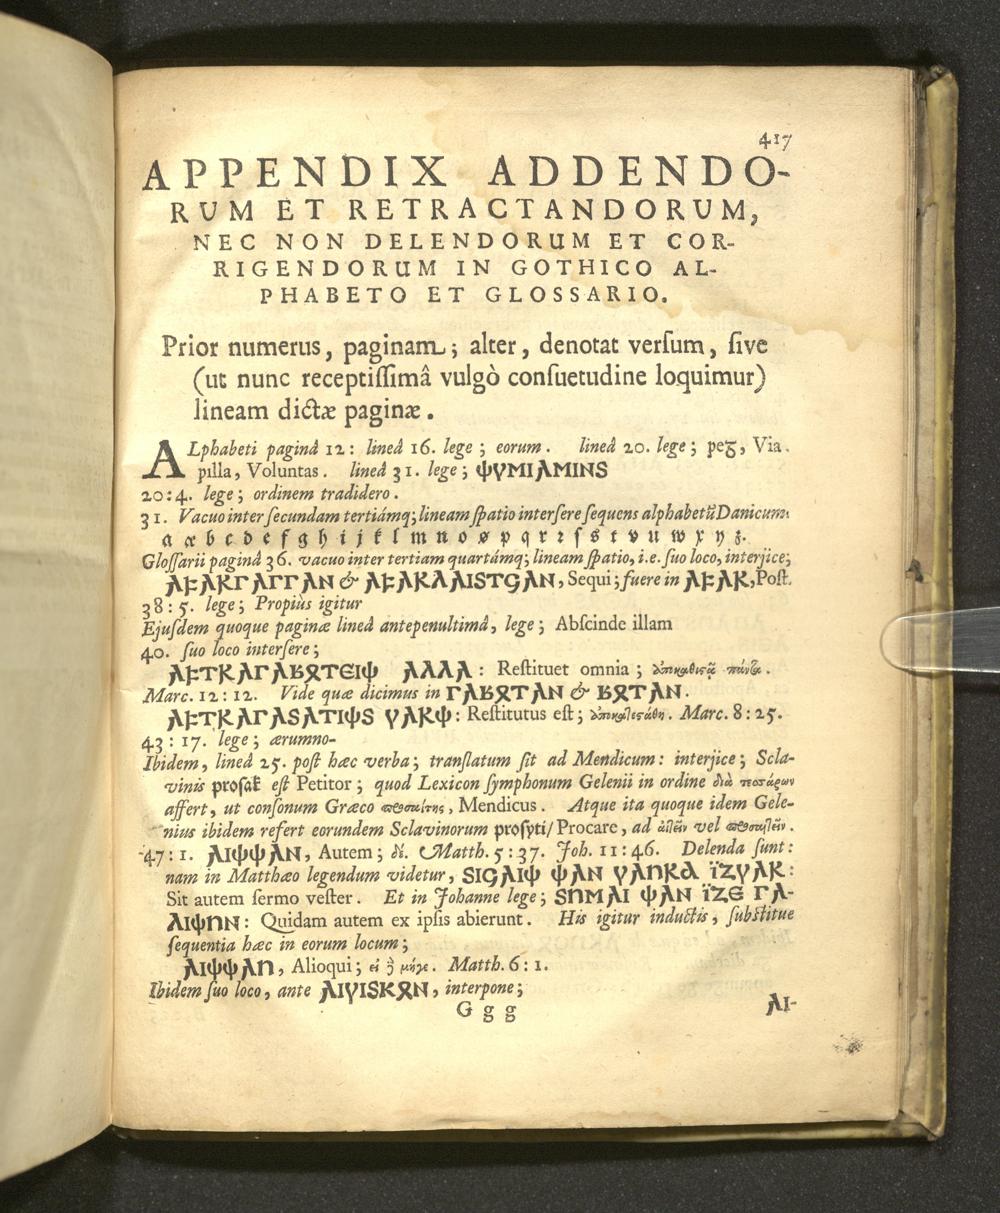 417
APPENDIX ADDENDO-
RUM ET RETRACTANDORUM,
NEC NON DELENDORUM ET COR-
RIGENDORUM IN GOTHICO AL-
PHABETO ET GLOSSARIO.
Prior numerus, paginam; alter, denotat verſum, ſive
(ut nunc receptiſſimâ vulgò conſuetudine loquimur)
lineam dictæ paginæ.
ALphabeti paginâ 12: lineâ 16. lege; eorum. lineâ 20. lege; peꝫ, Via.
pilla, Voluntas. lineâ 31. lege; 𐍈𐍅𐌼𐌹𐌰𐌼𐌹𐌽𐍃
20:4. lege; ordinem tradidero.
31. Vacuo inter ſecundam tertiámq; lineam ſpatio interſere ſequens alphabetũ Danicum:
a æ b c d e f g h i j k l m n o ø p q r ꝛ ſ s t v u w x y ȝ.
Gloſſarii paginâ 36. vacuo inter tertiam quartámq; lineam ſpatio, i.e. ſuo loco, interjice;
𐌰𐍆𐌰𐍂𐌲𐌰𐌲𐌲𐌰𐌽 & 𐌰𐍆𐌰𐍂𐌻𐌰𐌹𐍃𐍄𐌾𐌰𐌽, Sequi; fuere in 𐌰𐍆𐌰𐍂, Poſt.
38:5. lege; Propiùs igitur
Ejuſdem quoque paginæ lineâ antepenultimâ, lege; Abſcinde illam
40. ſuo loco interſere;
𐌰𐍆𐍄𐍂𐌰𐌲𐌰𐌱𐍉𐍄𐌴𐌹𐌸 𐌰𐌻𐌻𐌰: Reſtituet omnia; ἀποκαθιστᾷ πάντα.
Marc. 12:12. Vide quæ dicimus in 𐌲𐌰𐌱𐍉𐍄𐌰𐌽 & 𐌱𐍉𐍄𐌰𐌽.
𐌰𐍆𐍄𐍂𐌰𐌲𐌰𐍃𐌰𐍄𐌹𐌸𐍃 𐍅𐌰𐍂𐌸: Reſtitutus eſt; ἀποκατεστάθη. Marc. 8:25.
43:17. lege; ærumno-
Ibidem, lineâ 25. poſt hæc verba; tranſlatum ſit ad Mendicum: interjice; Scla-
vinis proſak eſt Petitor; quod Lexicon ſymphonum Gelenii in ordine διὰ τεσσάρων
affert, ut conſonum Græco προσαίτης, Mendicus. Atque ita quoque idem Gele-
nius ibidem refert eorundem Sclavinorum proſyti/ Procare, ad αἰτεῖν vel προσαιτεῖν.
47:1. 𐌰𐌹𐌸𐌸𐌰𐌽, Autem; δέ. Matth. 5:37. Joh. 11:46. Delenda ſunt:
nam in Matthæo legendum videtur, 𐍃𐌹𐌾𐌰𐌹𐌸 𐌸𐌰𐌽 𐍅𐌰𐌿𐍂𐌳 𐌹̈𐌶𐍅𐌰𐍂:
Sit autem ſermo veſter. Et in Johanne lege; 𐍃𐌿𐌼𐌰𐌹 𐌸𐌰𐌽 𐌹̈𐌶𐌴 𐌲𐌰-
𐌻𐌹𐌸𐌿𐌽: Quidam autem ex ipſis abierunt. His igitur inductis, ſubſtitue
ſequentia hæc in eorum locum;
𐌰𐌹𐌸𐌸𐌰𐌿, Alioqui; εἰ δὲ μήγε. Matth. 6:1.
Ibidem ſuo loco, ante 𐌰𐌹𐍅𐌹𐍃𐌺𐍉𐌽, interpone;
G g g
𐌰𐌹-